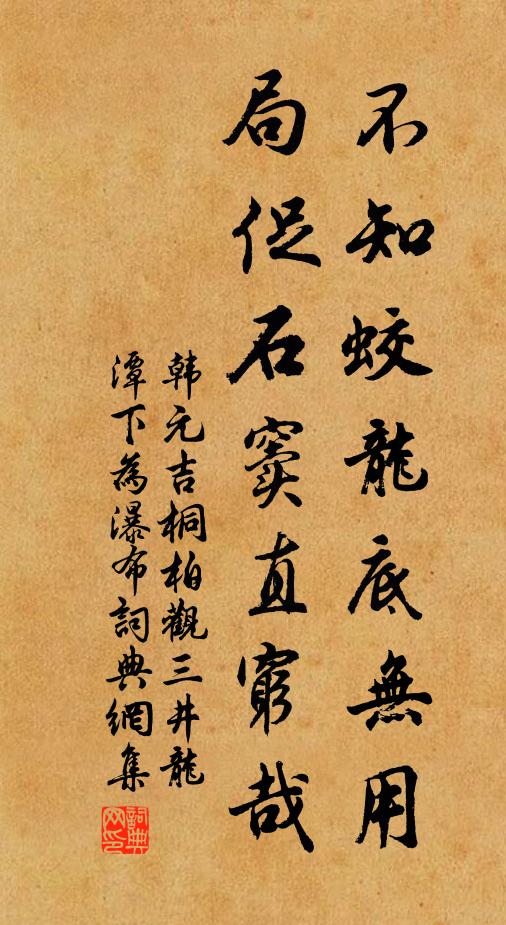 不知蛟龍底無用
局促石竇直窮哉
韩元吉桐柏觀三井龍
潭下為瀑布詞典網集
詞典网印